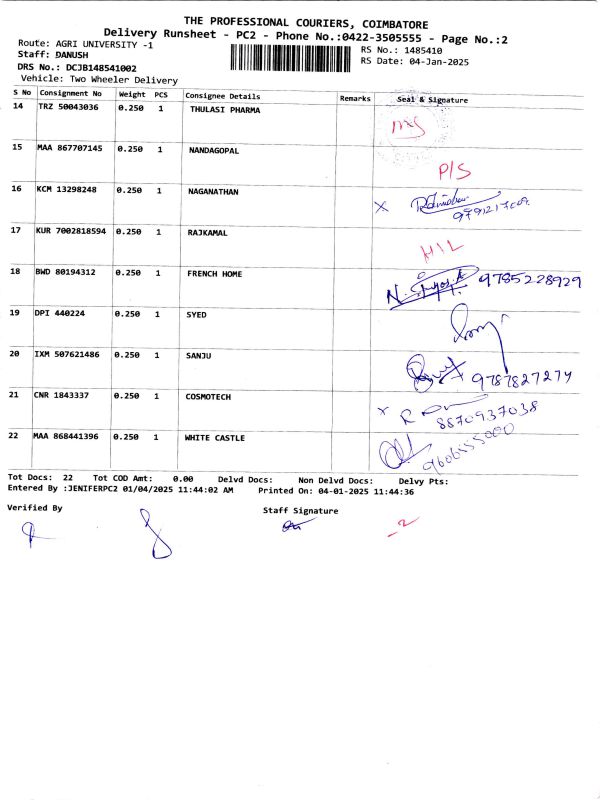 THE PROFESSIONAL COURIERS, COIMBATORE
Delivery Runsheet - PC2 - Phone No.:0422-3505555 - Page No.:2
Route: AGRI UNIVERSITY -1
Staff: DANUSH
DRS No.: DCJB148541002
Vehicle: Two Wheeler Delivery
RS No.: 1485410
RS Date: 04-Jan-2025
S No Consignment No Weight PCS Consignee Details Remarks Seal & Signature
14 TRZ 50043036 0.250 1 THULASI PHARMA
15 MAA 867707145 0.250 1 NANDAGOPAL P/S
16 KCM 13298248 0.250 1 NAGANATHAN X
17 KUR 7002818594 0.250 1 RAJKAMAL H/L
18 BWD 80194312 0.250 1 FRENCH HOME 9785228929
19 DPI 440224 0.250 1 SYED
20 IXM 507621486 0.250 1 SANJU 9787827274
21 CNR 1843337 0.250 1 COSMOTECH x 8870937038
22 MAA 868441396 0.250 1 WHITE CASTLE
Tot Docs: 22 Tot COD Amt: 0.00 Delvd Docs: Non Delvd Docs: Delvy Pts:
Entered By :JENIFERPC2 01/04/2025 11:44:02 AM Printed On: 04-01-2025 11:44:36
Verified By Staff Signature
-2